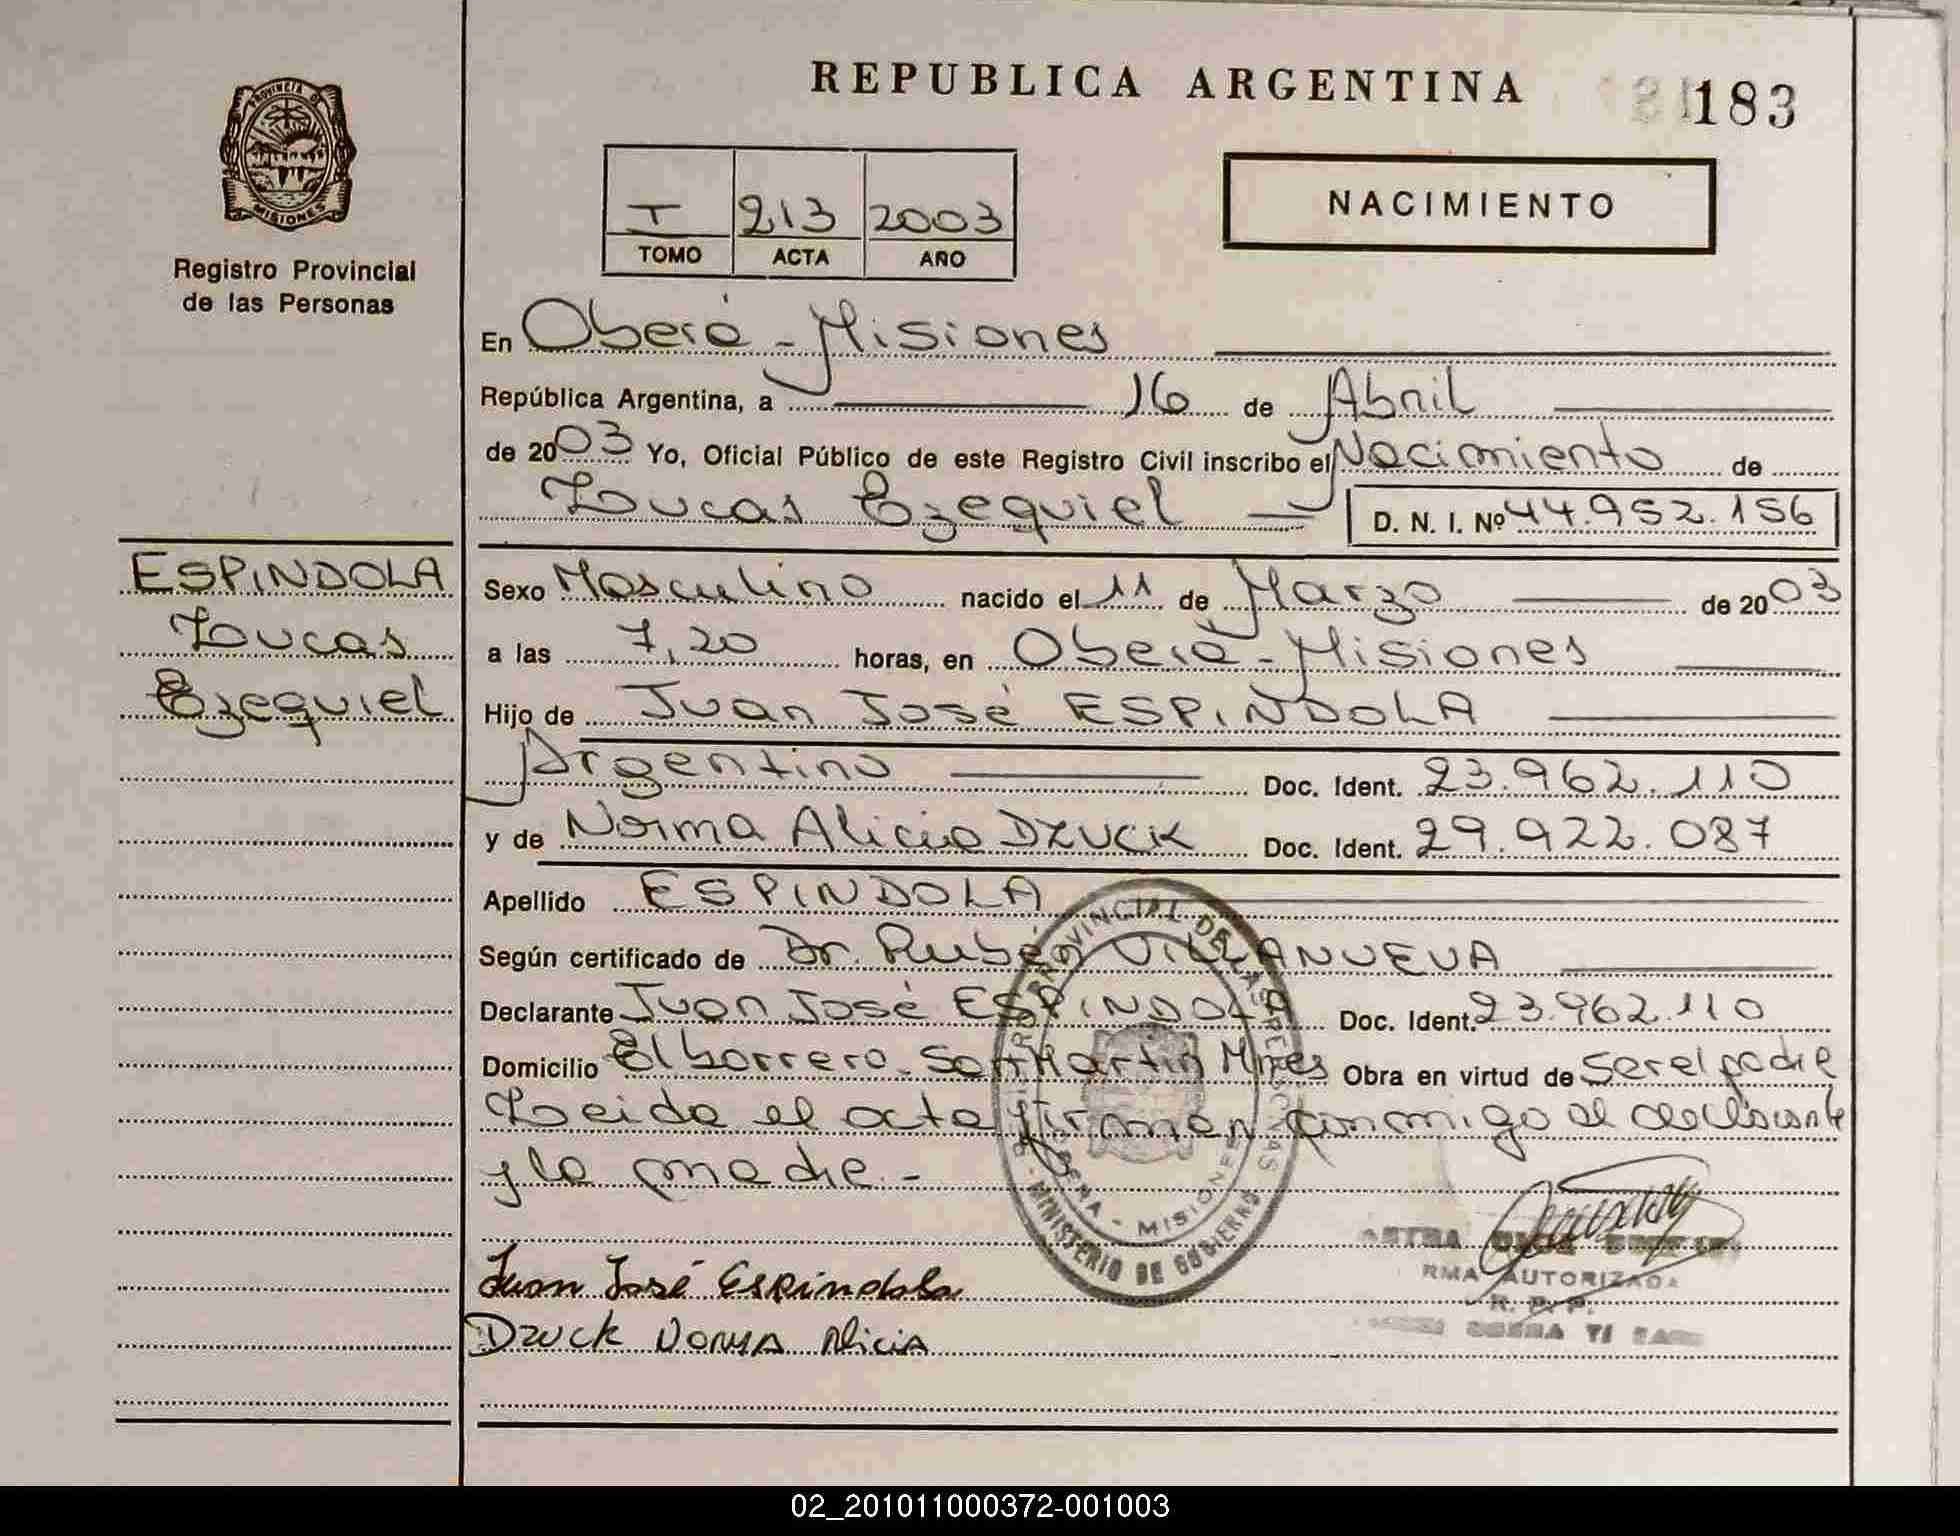 REPUBLICA ARGENTINA
183
PROVINCIA DE
MISIONES
Registro Provincial
de las Personas
I 213 2003
TOMO ACTA AÑO
NACIMIENTO
En Oberá - Misiones
República Argentina, a 16 de Abril
de 2003 Yo, Oficial Público de este Registro Civil inscribo el Nacimiento de
Lucas Ezequiel D. N. I. Nº 44.952.156
ESPINDOLA
Lucas
Ezequiel
Sexo Masculino nacido el 11 de Marzo de 2003
a las 7,20 horas, en Oberá - Misiones
Hijo de Juan José ESPINDOLA
Argentino Doc. Ident. 23.962.110
y de Norma Alicia DZUCK Doc. Ident. 29.922.087
Apellido ESPINDOLA
Según certificado de Dr. Rubén VILLANUEVA
Declarante Juan José ESPINDOLA Doc. Ident. 23.962.110
Domicilio El borrero - San Martín Mnes Obra en virtud de ser el padre
Leida el acta firman conmigo el declarante
y la madre.-
PROVINCIAL DE LAS PERSONAS
MISIONES
MINISTERIO DE GOBIERNO
Juan José Espindola
Dzuck Norma Alicia
RMA AUTORIZADA
R. P. P.
02_201011000372-001003